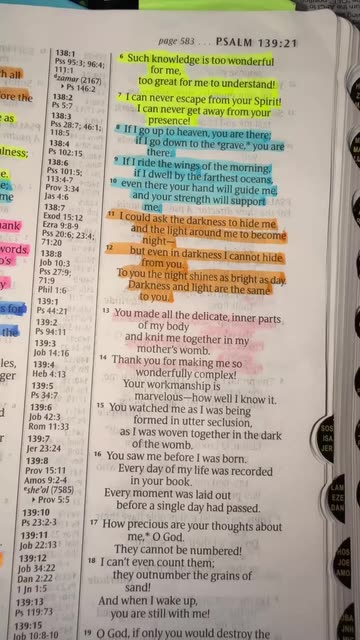 page 583 . . . PSALM 139:21
h all
ore the
e as
ulness;
e.
me
hank
words.
o's
s for
the
les,
ger
138:1
Pss 95:3; 96:4;
111:1
dzamar (2167)
▸ Ps 146:2
138:2
Ps 5:7
138:3
Pss 28:7; 46:1;
118:5
138:4
Ps 102:15
138:6
Pss 101:5;
113:4-7
Prov 3:34
Jas 4:6
138:7
Exod 15:12
Ezra 9:8-9
Pss 20:6; 23:4;
71:20
138:8
Job 10:3
Pss 27:9;
71:9
Phil 1:6
139:1
Ps 44:21
139:2
Ps 94:11
139:3
Job 14:16
139:4
Heb 4:13
139:5
Ps 34:7
139:6
Job 42:3
Rom 11:33
139:7
Jer 23:24
139:8
Prov 15:11
Amos 9:2-4
she'ol (7585)
▸ Prov 5:5
139:10
Ps 23:2-3
139:11
Job 22:13
139:12
Job 34:22
Dan 2:22
1 Jn 1:5
139:13
Ps 119:73
139:15
Job 10:8-10
6 Such knowledge is too wonderful
for me,
too great for me to understand!
7 I can never escape from your Spirit!
I can never get away from your
presence!
8 If I go up to heaven, you are there;
if I go down to the *grave,* you are
there.
9 If I ride the wings of the morning,
if I dwell by the farthest oceans,
10 even there your hand will guide me,
and your strength will support
me.
11 I could ask the darkness to hide me
and the light around me to become
night—
12 but even in darkness I cannot hide
from you.
To you the night shines as bright as day.
Darkness and light are the same
to you.
13 You made all the delicate, inner parts
of my body
and knit me together in my
mother's womb.
14 Thank you for making me so
wonderfully complex!
Your workmanship is
marvelous—how well I know it.
15 You watched me as I was being
formed in utter seclusion,
as I was woven together in the dark
of the womb.
16 You saw me before I was born.
Every day of my life was recorded
in your book.
Every moment was laid out
before a single day had passed.
17 How precious are your thoughts about
me,* O God.
They cannot be numbered!
18 I can't even count them;
they outnumber the grains of
sand!
And when I wake up,
you are still with me!
19 O God, if only you would destroy the
SOS
ISA
JER
LAM
EZE
DAN
HOS
JOE
AMO